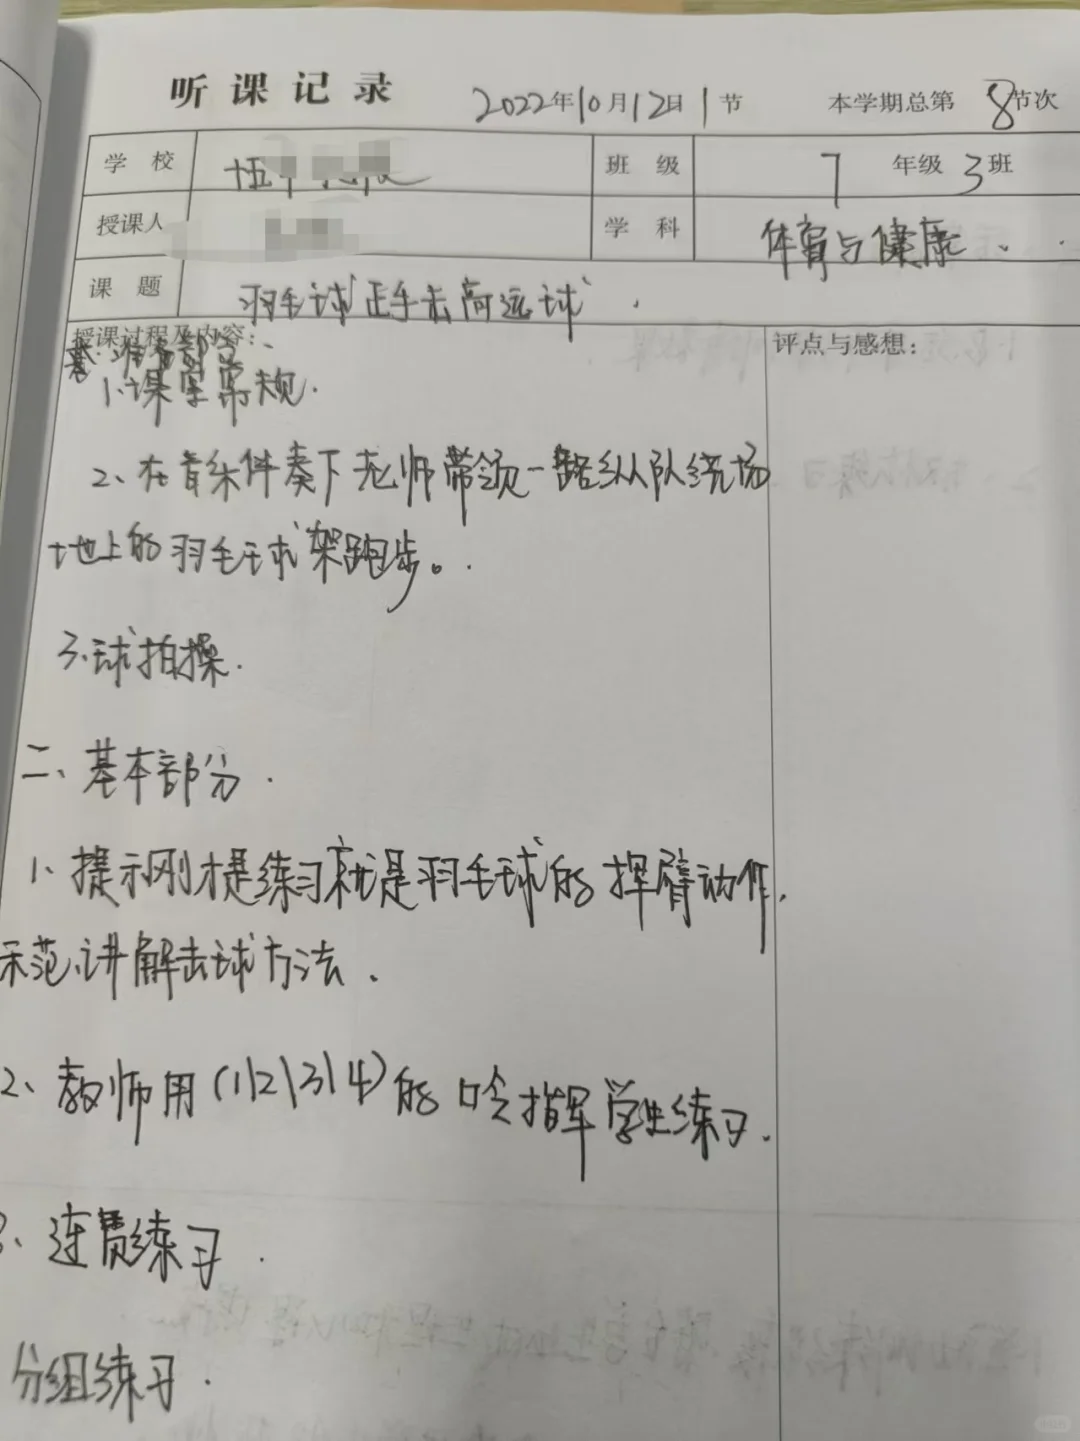 听课记录 2022年10月12日 1节 本学期总第8节次
学校 班级 7年级3班
授课人 学科 体育与健康
课题 羽毛球正手击高远球
授课过程及内容： 评点与感想：
准备部分
1、课堂常规.
2、在音乐伴奏下老师带领一路纵队绕场
地上的羽毛球架跑步。
3.球拍操.
二、基本部分.
1、提示刚才是练习就是羽毛球的挥臂动作,
示范、讲解击球方法.
2、教师用(1\2\3\4)的口令指挥学生练习.
3、连贯练习.
分组练习.